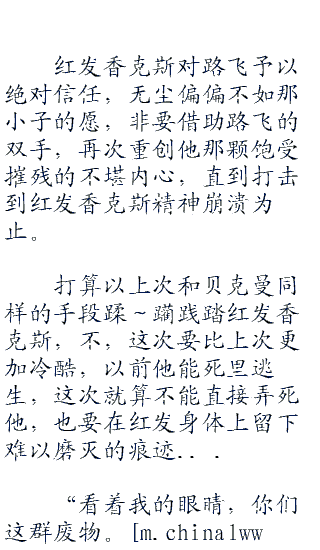 红发香克斯对路飞予以
绝对信任，无尘偏偏不如那
小子的愿，非要借助路飞的
双手，再次重创他那颗饱受
摧残的不堪内心，直到打击
到红发香克斯精神崩溃为
止。
打算以上次和贝克曼同
样的手段蹂～躏践踏红发香
克斯，不，这次要比上次更
加冷酷，以前他能死里逃
生，这次就算不能直接弄死
他，也要在红发身体上留下
难以磨灭的痕迹...
“看着我的眼睛，你们
这群废物。[m.china1ww